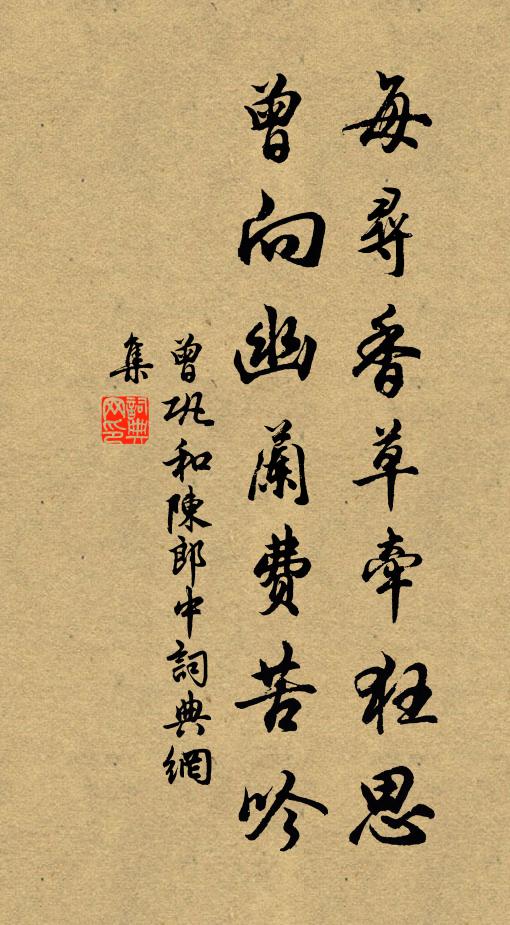 每尋香草牽狂思
曾向幽蘭費苦吟
曾巩和陳郎中詞典網
集
詞典
网印